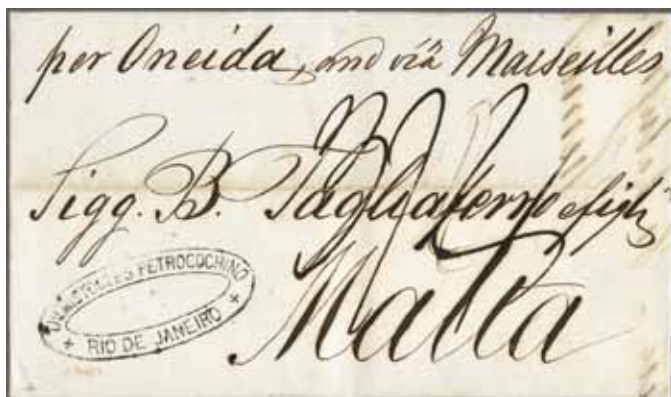 per Oneida, and viâ Marseilles
Sigg. B. Tagliaferro e figli
Malta
PETROCOCHINO
+ RIO DE JANEIRO +